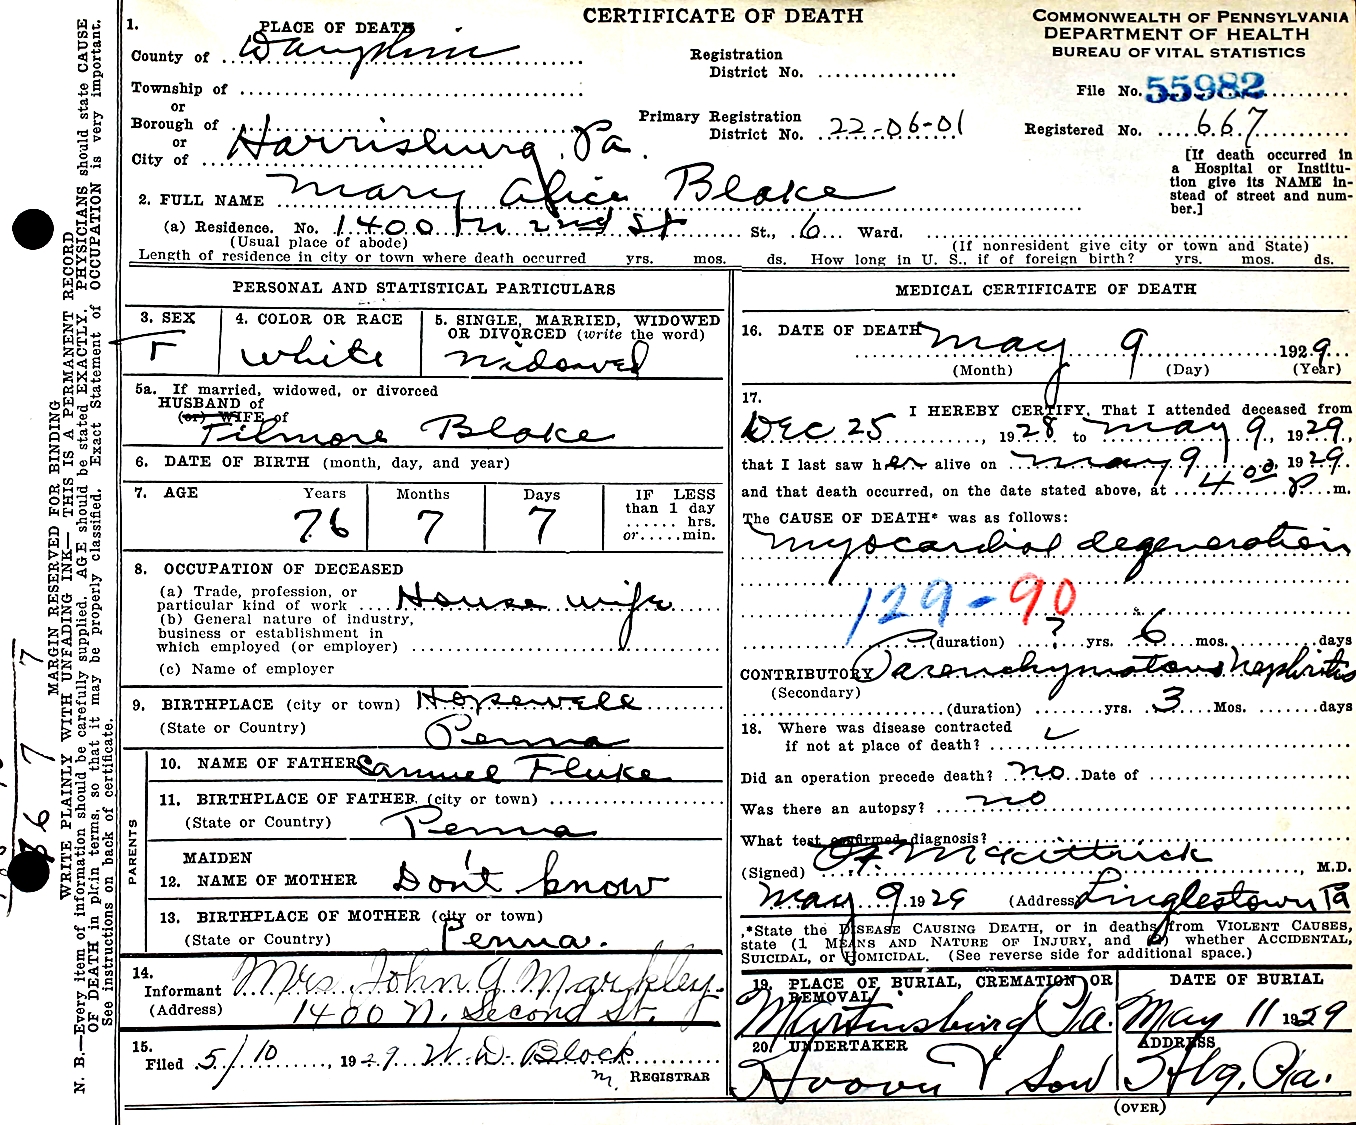 CERTIFICATE OF DEATH
COMMONWEALTH OF PENNSYLVANIA
DEPARTMENT OF HEALTH
BUREAU OF VITAL STATISTICS
1. PLACE OF DEATH
County of Dauphin
Registration
District No.
File No. 55982
Township of
or
Borough of
or
City of Harrisburg, Pa.
Primary Registration
District No. 22-06-01
Registered No. 667
[If death occurred in
a Hospital or Institu-
tion give its NAME in-
stead of street and num-
ber.]
2. FULL NAME Mary Alice Blake
(a) Residence. No. 1400 N 2nd St St., 6 Ward.
(Usual place of abode) (If nonresident give city or town and State)
Length of residence in city or town where death occurred yrs. mos. ds. How long in U. S., if of foreign birth? yrs. mos. ds.
PERSONAL AND STATISTICAL PARTICULARS
3. SEX
F
4. COLOR OR RACE
White
5. SINGLE, MARRIED, WIDOWED
OR DIVORCED (write the word)
Widowed
5a. If married, widowed, or divorced
HUSBAND of
(or) WIFE of
Filmore Blake
6. DATE OF BIRTH (month, day, and year)
7. AGE Years Months Days
76 7 7
IF LESS
than 1 day
...... hrs.
or.....min.
8. OCCUPATION OF DECEASED
(a) Trade, profession, or
particular kind of work House wife
(b) General nature of industry,
business or establishment in
which employed (or employer)
(c) Name of employer
9. BIRTHPLACE (city or town) Hopewell
(State or Country) Penna
PARENTS
10. NAME OF FATHER Samuel Fluke
11. BIRTHPLACE OF FATHER (city or town)
(State or Country) Penna
MAIDEN
12. NAME OF MOTHER Don't know
13. BIRTHPLACE OF MOTHER (city or town)
(State or Country) Penna.
14.
Informant Mrs. John G. Markley.
(Address) 1400 N. Second St.
15.
Filed 5/10, 1929 W. D. Block
m. REGISTRAR
MEDICAL CERTIFICATE OF DEATH
16. DATE OF DEATH
May 9 1929
(Month) (Day) (Year)
17.
I HEREBY CERTIFY, That I attended deceased from
Dec 25, 1928 to May 9, 1929,
that I last saw her alive on May 9, 1929
and that death occurred, on the date stated above, at 4 00 P m.
The CAUSE OF DEATH* was as follows:
Myocardial degeneration
129-90
(duration) ? yrs. 6 mos. days
CONTRIBUTORY Parenchymatous Nephritis
(Secondary)
(duration) yrs. 3 Mos. days
18. Where was disease contracted
if not at place of death?
Did an operation precede death? no Date of
Was there an autopsy? no
What test confirmed diagnosis?
(Signed) McKittrick, M.D.
May 9, 1929 (Address) Linglestown Pa
*State the DISEASE CAUSING DEATH, or in deaths from VIOLENT CAUSES,
state (1 MEANS AND NATURE OF INJURY, and (2) whether ACCIDENTAL,
SUICIDAL, or HOMICIDAL. (See reverse side for additional space.)
19. PLACE OF BURIAL, CREMATION OR
REMOVAL
Martinsburg Pa.
DATE OF BURIAL
May 11 1929
20. UNDERTAKER
Hoover & Son
ADDRESS
Hbg. Pa.
(OVER)
MARGIN RESERVED FOR BINDING
WRITE PLAINLY WITH UNFADING INK—THIS IS A PERMANENT RECORD
N. B.—Every item of information should be carefully supplied. AGE should be stated EXACTLY. PHYSICIANS should state CAUSE
OF DEATH in plain terms, so that it may be properly classified. Exact Statement of OCCUPATION is very important.
See instructions on back of certificate.